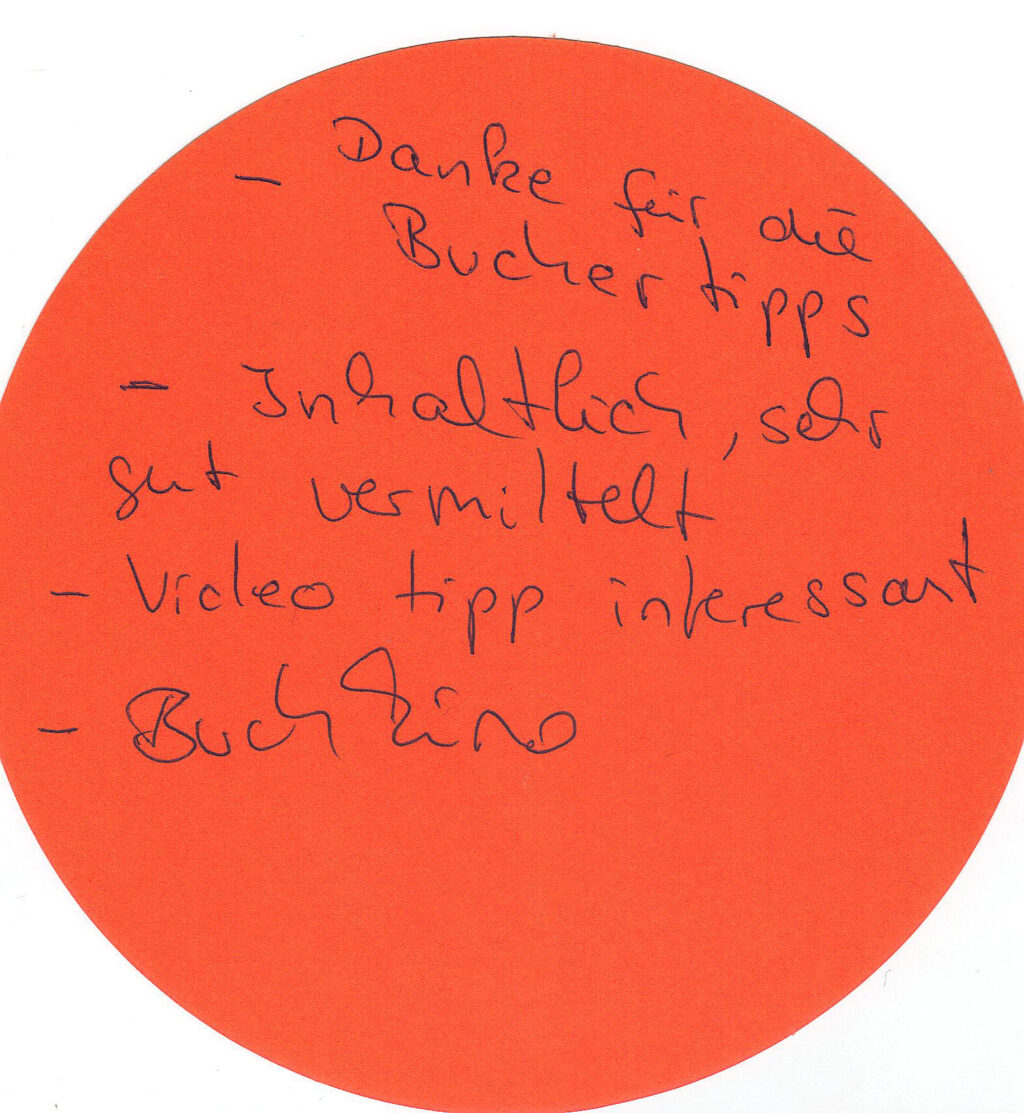 - Danke für die
Bucher tipps
- Inhaltlich, sehr
gut vermittelt
- Video tipp interessant
- Buchkino